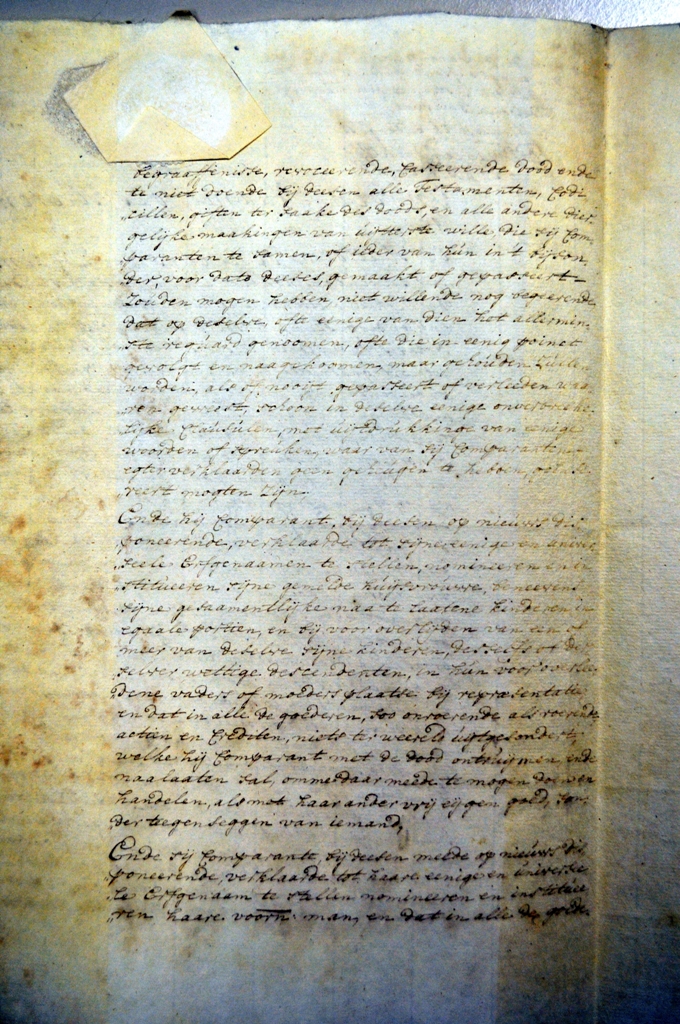 begraaffenisse, revoceerende, Casseerende dood ende
te niet doende bij deesen alle Testamenten, Codi
cillen, giften ter saake des doods, en alle andere dier
gelijke maakingen van uijtterste wille, die sij Com,
paranten te samen, of ieder van hun in 't bijson
der, voor dato deeses, gemaakt of gepasseert
Zouden mogen hebben niet willende nog begeerende
dat op deselve, ofte eenige van dien het allermin
ste reguard genoomen, ofte die in eenig poinct
gevolgt en naagekoomen, maar gehouden Zulle
worden, als of nooijt gepasseert of verleeden waa
ren geweest, schoon in deselve eenige onverbreke
lijke Clausulen, met uijtdrukkinge van eenige
woorden of spreuken, waar van sij Comparanten
egter verklaarden geen geheugen te hebben, gein se
reert mogten Zijn.
Ende hij Comparant, bij deesen op nieuws dis
poneerende, verklaarde tot sijne eenige en univer
seele Erfgenaamen te stellen, nomineeren en in
stitueeren sijne gemelde huijsvrouwe, beneevens
sijne gesaamentlijke naa te laatene kinderen in
egaale portien, en bij voor overlijden van een of
meer van deselve sijne kinderen, desselfs of der
selver wettige descendenten, in hun voor overlee
dene vaders of moeders plaatse bij representatie
en dat in alle de goederen, soo onroerende als roerende
actien en Crediten, niets ter weereld uijtgesondert,
welke hij Comparant met de dood ontruijmen ende
naalaaten sal, omme daar meede te mogen doen en
handelen, als met haar ander vrij eijgen goed, son
der teegenseggen van iemand,
Ende sij Comparante, bij deesen meede op nieuws dis
poneerende, verklaarde tot haare eenige en universee
le Erfgenaam te stellen nomineeren en institueer
ren haare voorn. man, en dat in alle de goede